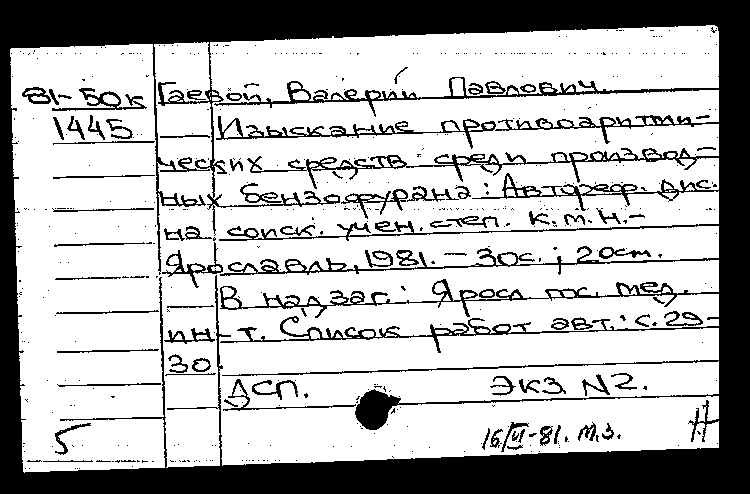 81-50к Гаевой, Валерий Павлович.
1445 Изыскание противоаритми-
ческих средств среди производ-
ных бензофурана: Автореф. дис.
на соиск. учен. степ. к.м.н.-
Ярославль, 1981. - 30с.; 20см.
В надзаг.: Яросл гос. мед.
ин-т. Список работ авт.: с. 29-
30.
ДСП. Экз. N2.
5 16/VI-81. М.З. Н